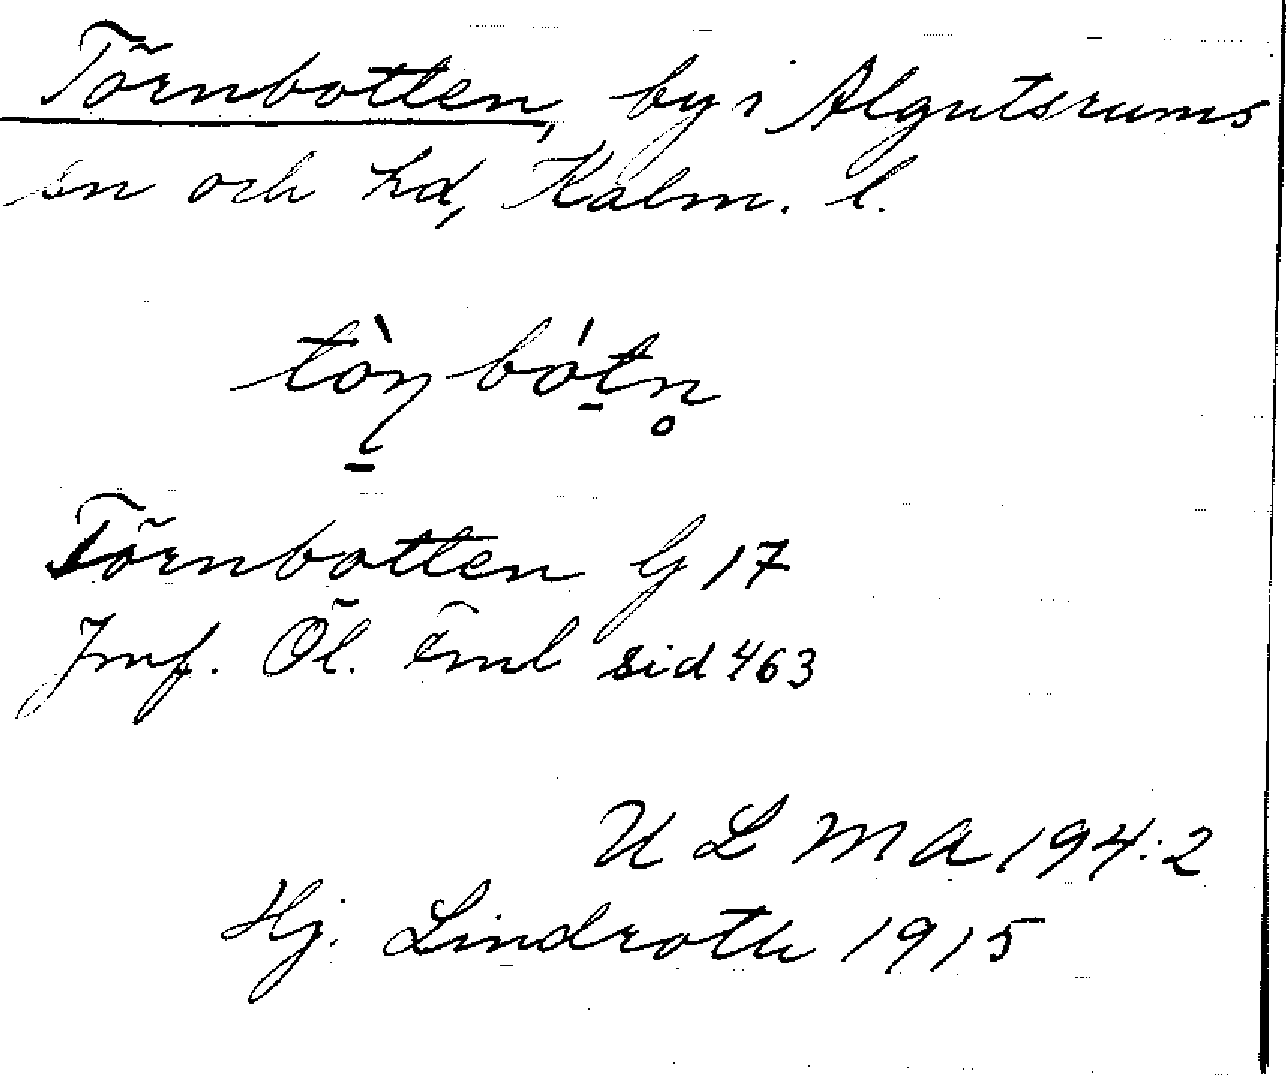 Törnbotten, by i Algutsrums
sn och hd, Kalm. l.
tö̀ɳbótn̥
Törnbotten G 17
Jmf. Öl. Fml sid 463
ULMA 194:2
Hj. Lindroth 1915